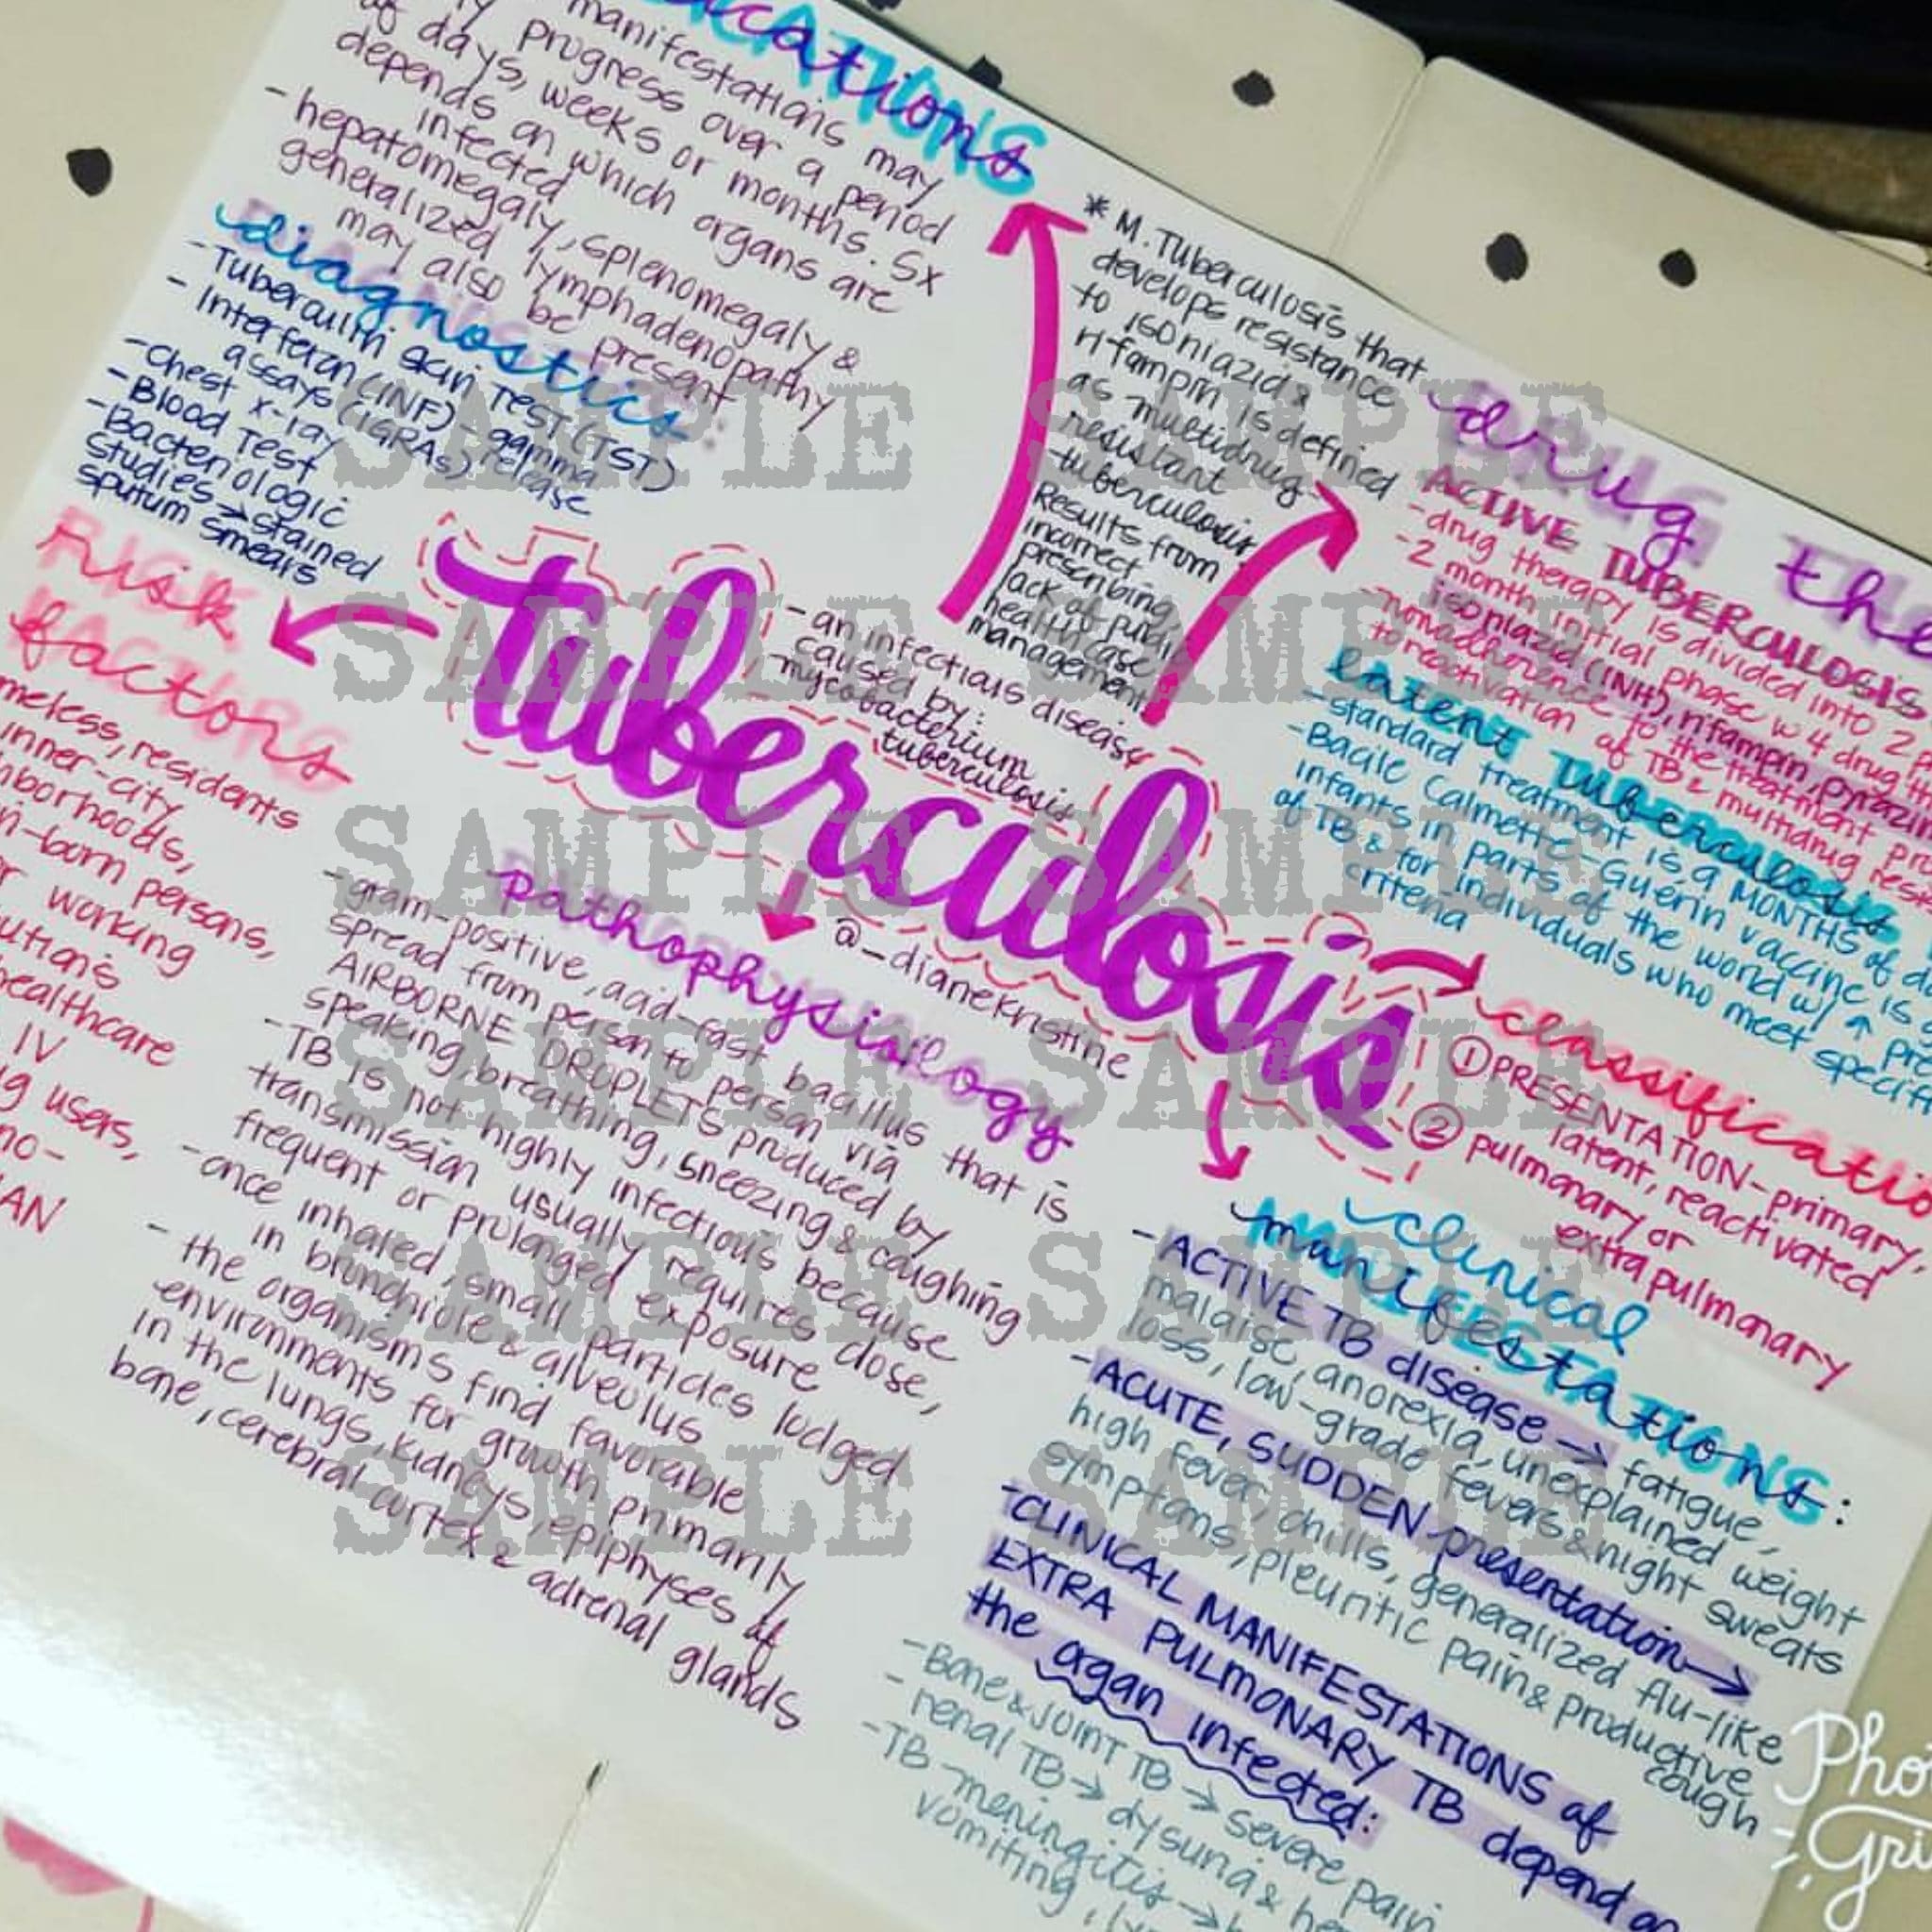 manifestations may
progress over a period
of days, weeks or months. Sx
depends on which organs are
infected
- hepatomegaly, splenomegaly &
generalized lymphadenopathy
may also be present
diagnostics:
- Tuberculin skin TEST (TST)
- Interferon (INF) - gamma release
assays (IGRAs)
- chest x-ray
- Blood Test
- Bacteriologic
studies → stained
sputum smears
* M. Tuberculosis that
develops resistance
to isoniazid &
rifampin is defined
as multidrug-
resistant
tuberculosis.
Results from
incorrect
prescribing,
lack of public
health case
management
drug the
ACTIVE TUBERCULOSIS
- drug therapy is divided into 2
- 2 month initial phase w 4 drug
isoniazid (INH), rifampin,
- nonadherence to the treatment
to reactivation of TB & multidrug
LATENT TUBERCULOSIS
- standard treatment is 9 MONTHS of
- Bacile Calmette-Guérin vaccine is
infants in parts of the world w/ ↑
of TB & for individuals who meet
criteria
RISK
factors
residents
inner-city
persons,
working
healthcare
IV
users,
tuberculosis
- an infectious disease
caused by:
mycobacterium
tuberculosis
@_dianekristine
pathophysiology
- gram-positive, acid-fast bacillus that is
spread from person to person via
AIRBORNE DROPLETS produced by
speaking, breathing, sneezing & coughing
- TB is not highly infectious because
transmission usually requires close,
frequent or prolonged exposure
- once inhaled, small particles lodged
in bronchiole & alveolus
- the organisms find favorable
environments for growth primarily
in the lungs, kidneys, epiphyses of
bone, cerebral cortex & adrenal glands
① PRESENTATION - primary,
latent, reactivated
② pulmonary or
extrapulmonary
clinical
manifestations:
- ACTIVE TB disease → fatigue,
malaise, anorexia, unexplained weight
loss, low-grade fevers & night sweats
- ACUTE, SUDDEN presentation →
high fever, chills, generalized flu-like
symptoms, pleuritic pain & productive
cough
- CLINICAL MANIFESTATIONS of
EXTRA PULMONARY TB depend on
the organ infected:
- Bone & JOINT TB → severe pain
- renal TB → dysuria &
- TB meningitis →
vomiting,
SAMPLE SAMPLE
SAMPLE SAMPLE
SAMPLE SAMPLE
SAMPLE SAMPLE
SAMPLE SAMPLE
SAMPLE SAMPLE